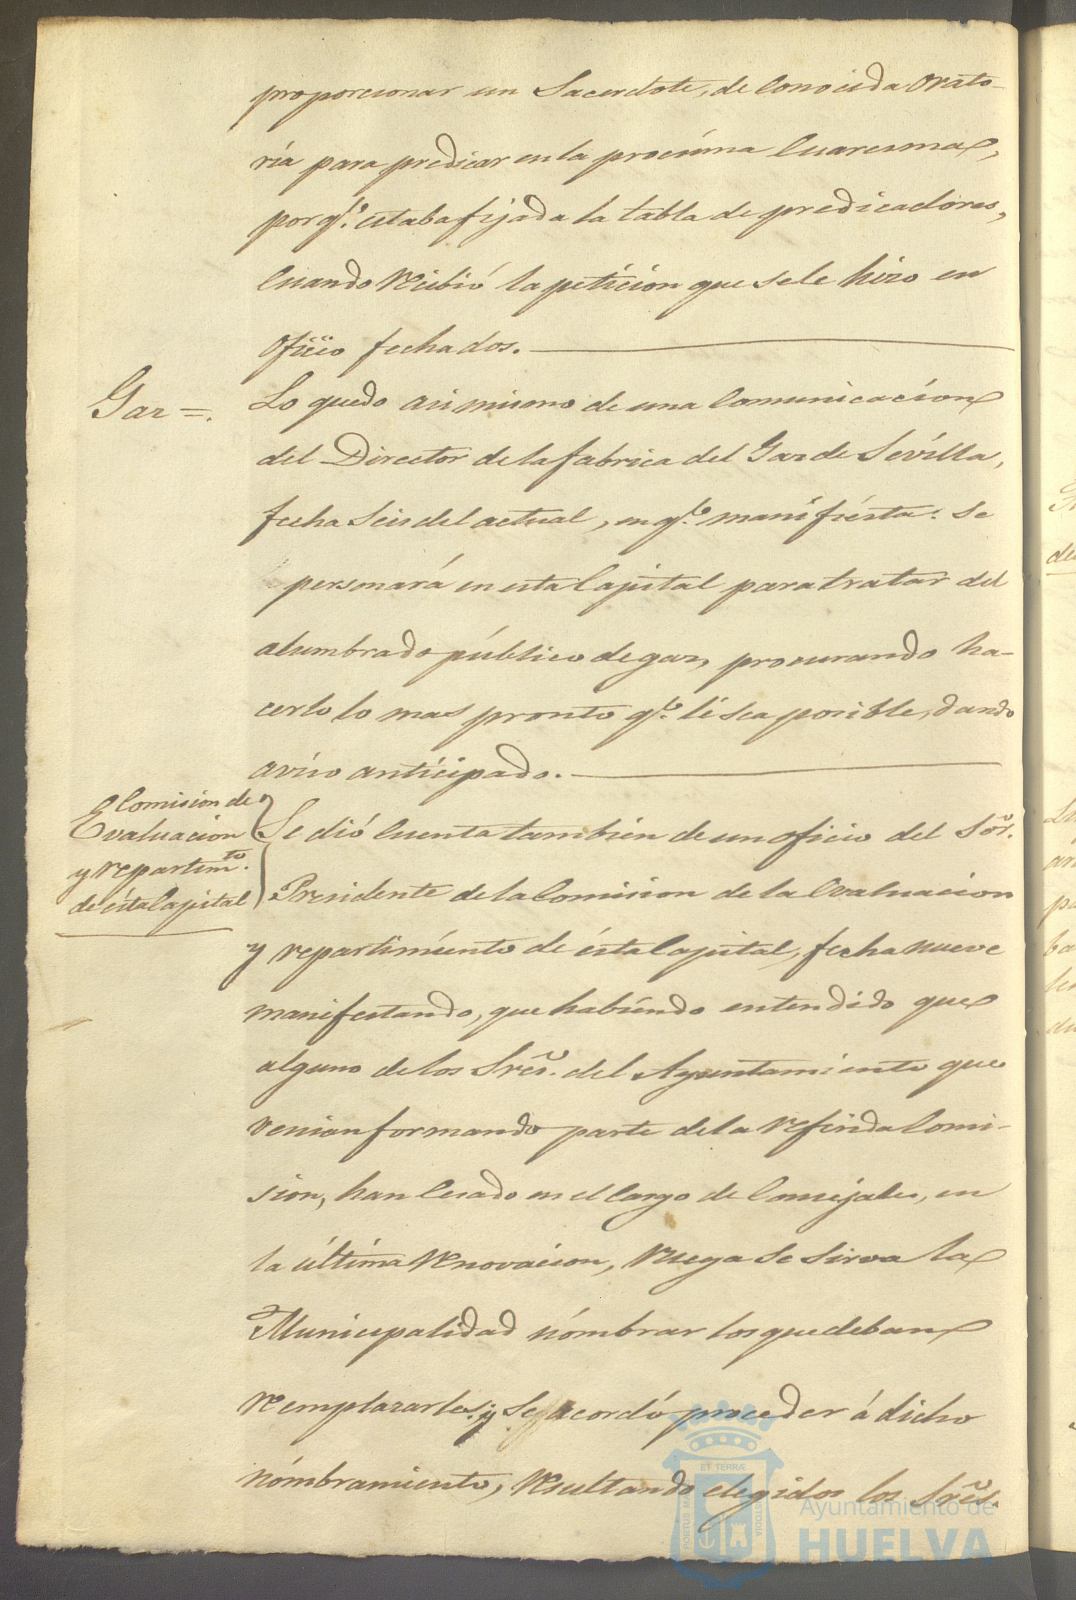 proporcionar un Sacerdote, de conocida Orato-
ria para predicar en la procsima Cuaresma,
por qe. estaba fijada la tabla de predicadores,
cuando recibió la petición que se le hizo en
oficio fecha dos.
Gaz =.
Lo quedo asi mismo de una Comunicación
del Director de la fabrica del Gaz de Sevilla,
fecha Seis del actual, en qe. manifiesta: se
personará en esta Capital para tratar del
alumbrado público de gaz, procurando ha-
cerlo lo mas pronto qe. le sea posible, dando
aviso anticipado.
Comision de
Evaluacion
y repartimto.
de ésta Capital
Se dió cuenta también de un oficio del Sor.
Presidente de la Comision de la Evaluacion
y repartimiento de ésta Capital, fecha nueve
manifestando, que habiendo entendido que
alguno de los Sres. del Ayuntamiento que
venian formando parte de la referida Comi-
sion, han cesado en el cargo de Concejales, en
la última renovacion, ruega se sirva la
Municipalidad nómbrar los que deban
remplazarles; y se acordó proceder á dicho
nómbramiento, resultando elegidos los Sres.
ET TERRÆ
PORTUS MARIS
CUSTODIA
Ayuntamiento de
HUELVA